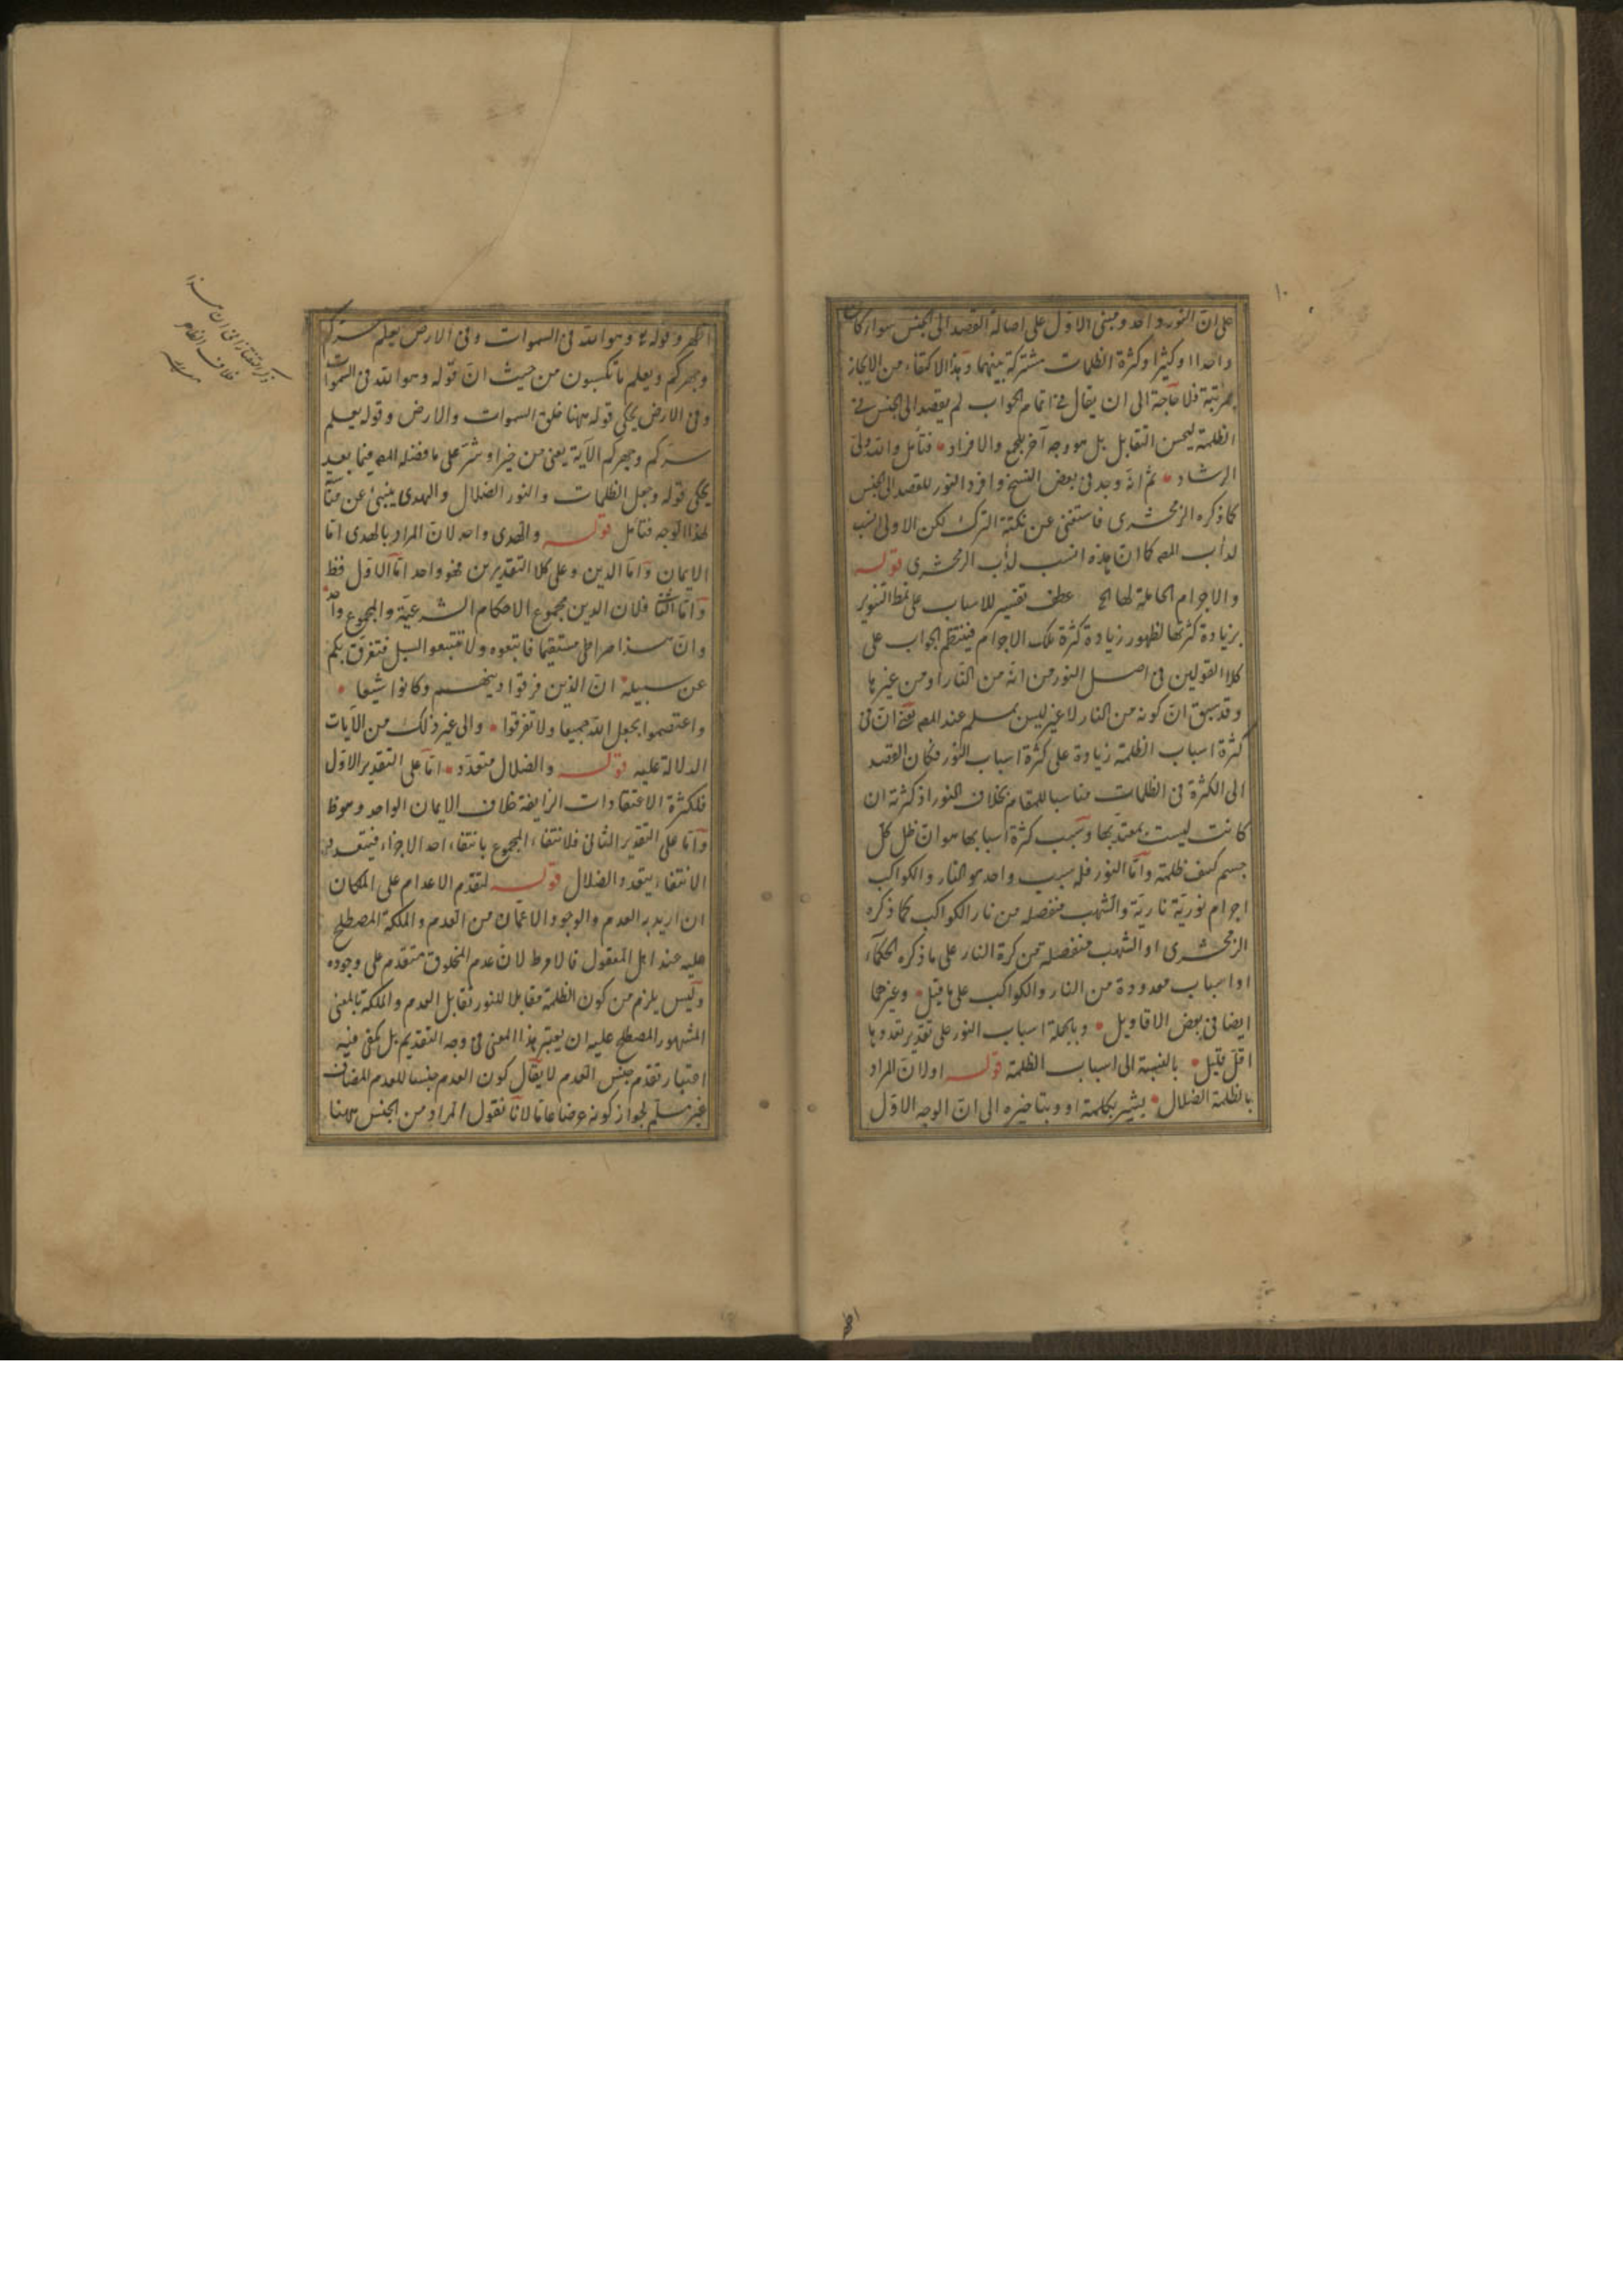 ١٠
على ان النور واحد ومبنى الاول على اصالة القصد الى الجنس سواء كان
واحدا او كثيرا وكثرة الظلمات مشتركة بينهما وهذا الاكتفاء من الايجاز
بمرتبة فلا حاجة الى ان يقال فى اتمام الجواب لم يقصد الى الجنس فى
الظلمة ليحسن التقابل بل هو وجه آخر للجمع والافراد فتأمل والله ولى
الرشاد ثم انه وجد فى بعض النسخ وافرد النور للقصد الى الجنس
كما ذكره الزمخشرى فاستغنى عن نكتة الترك لكن الاولى انسب
لدأب المصـ كما ان هذه انسب لدأب الزمخشرى قوله
والاجرام الحاملة لها الخ عطف تفسير للاسباب على نمط التنوير
بزيادة كثرتها لظهور زيادة كثرة تلك الاجرام فينتظم الجواب على
كلا القولين فى اصل النور من انه من النار او من غيرها
وقد سبق ان كونه من النار لا غير ليس بمسلم عند المصـ يعنى ان فى
كثرة اسباب الظلمة زيادة على كثرة اسباب النور فكان القصد
الى الكثرة فى الظلمات مناسبا للمقام بخلاف النور اذ كثرته ان
كانت ليست بمعتد بها وسبب كثرة اسبابها هو ان ظل كل
جسم كثيف ظلمة واما النور فله سبب واحد هو النار والكواكب
اجرام نورية نارية والشهب منفصلة من نار الكواكب كما ذكره
الزمخشرى او الشهب منفصلة من كرة النار على ما ذكره الحكماء
او اسباب معدودة من النار والكواكب على ما قيل وغيرهما
ايضا فى بعض الاقاويل وبالجملة اسباب النور على تقدير تعددها
اقل قليل بالنسبة الى اسباب الظلمة قوله او لان المراد
بالظلمة الضلال يشير بكلمة او وبتاخيره الى ان الوجه الاول
اظهر
اظهر وقوله تع وهو الله فى السموات وفى الارض يعلم سركم
وجهركم ويعلم ما تكسبون من حيث ان قوله وهو الله فى السموات
وفى الارض يحكى قوله ههنا خلق السموات والارض وقوله يعلم
سركم وجهركم الآية يعنى من خير او شر على ما فضله المصـ فيما بعد
يحكى قوله وجعل الظلمات والنور الضلال والهدى ينبئ عن
لهذا الوجه فتأمل قوله والهدى واحد لان المراد بالهدى اما
الايمان واما الدين وعلى كلا التقديرين فهو واحد اما الاول فظ
واما الثانى فلان الدين مجموع الاحكام الشرعية والمجموع واحد
وان هذا صراطى مستقيما فاتبعوه ولا تتبعوا السبل فتفرق بكم
عن سبيله ان الذين فرقوا دينهم وكانوا شيعا
واعتصموا بحبل الله جميعا ولا تفرقوا والى غير ذلك من الآيات
الدلالة عليه قوله والضلال متعدد اما على التقدير الاول
فلكثرة الاعتقادات الزايغة خلاف الايمان الواحد وهو ظ
واما على التقدير الثانى فلانتفاء المجموع بانتفاء احد الاجزاء فيتعدد
الانتفاء يتعدد الضلال قوله لتقدم الاعدام على الملكات
ان اريد به العدم والوجود الاعمان من العدم والملكة المصطلح
عليه عند اهل المعقول فالامر ظ لان عدم المخلوق متقدم على وجوده
وليس يلزم من كون الظلمة مقابلا للنور تقابل العدم والملكة بالمعنى
المشهور المصطلح عليه ان يعتبر هذا المعنى فى وجه التقديم بل يكفى فيه
اعتبار تقدم جنس العدم لا يقال كون العدم جنسا للعدم المضاف
غير مسلم لجواز كونه عرضا عاما لانا نقول المراد من الجنس ههنا
ذكر التفتازانى ان هذا
خلاف الظاهر